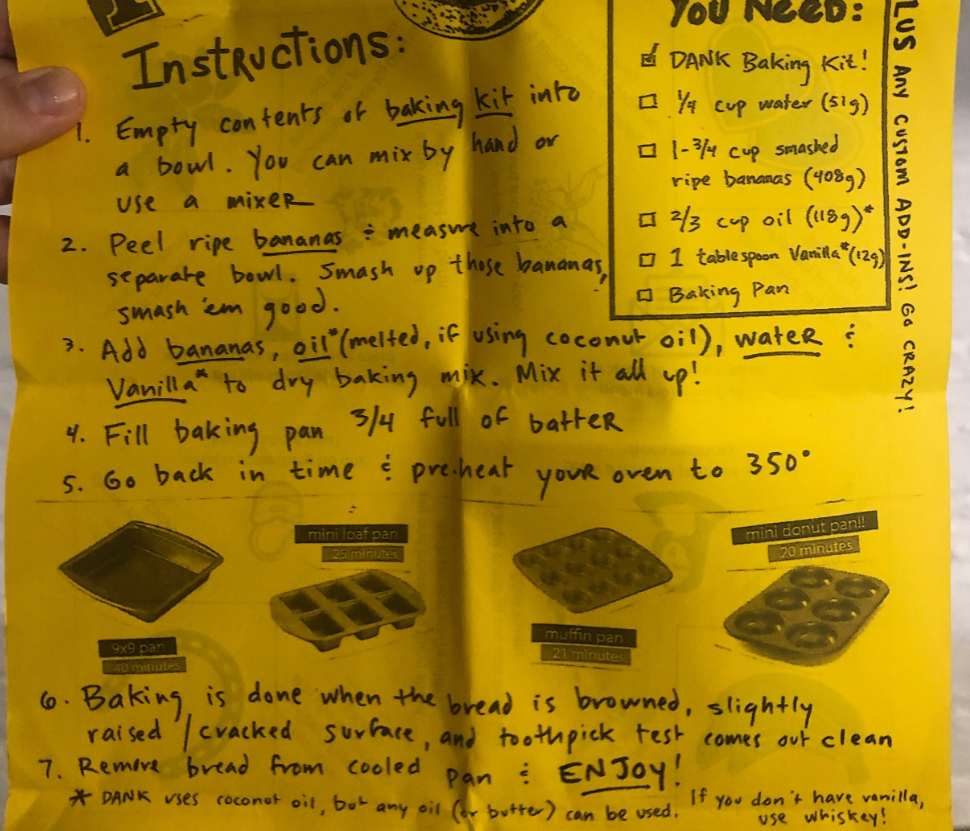 Instructions:
1. Empty contents of baking kit into
a bowl. You can mix by hand or
use a mixer
2. Peel ripe bananas & measure into a
separate bowl. Smash up those bananas,
smash 'em good.
3. Add bananas, oil* (melted, if using coconut oil), water &
Vanilla* to dry baking mix. Mix it all up!
4. Fill baking pan 3/4 full of batter
5. Go back in time & pre-heat your oven to 350°
You Need:
DANK Baking Kit!
1/4 cup water (51g)
1-3/4 cup smashed
ripe bananas (408g)
2/3 cup oil (118g)*
1 tablespoon Vanilla* (12g)
Baking Pan
PLUS ANY CUSTOM ADD-INS! GO CRAZY!
9x9 pan
40 minutes
mini loaf pan
25 minutes
muffin pan
21 minutes
mini donut pan!!
20 minutes
6. Baking is done when the bread is browned, slightly
raised / cracked surface, and toothpick test comes out clean
7. Remove bread from cooled pan & ENJOY!
* DANK uses coconut oil, but any oil (or butter) can be used. If you don't have vanilla,
use whiskey!